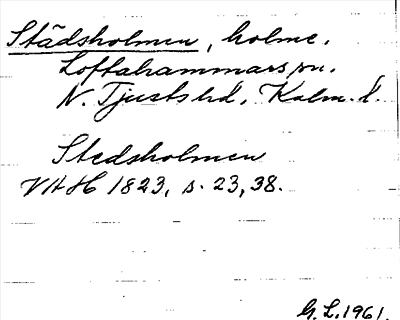 Städsholmen, holme.
Loftahammars sn.
N. Tjusts hd. Kalm. l.
Stedsholmen
VAH 1823, s. 23, 38.
G. L. 1961.